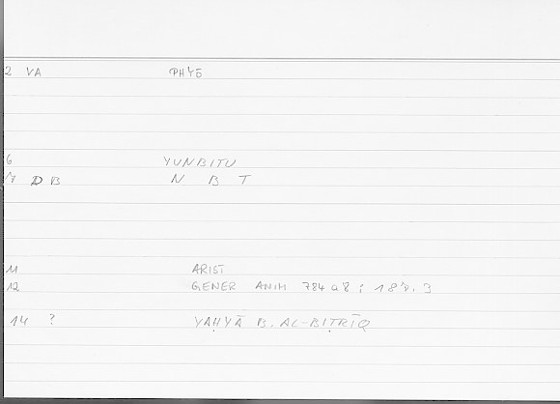 2 VA PHYŌ
6 YUNBITU
7 DB N B T
11 ARIST
12 GENER ANIM 784 a 8 ;
14 ? YAḤYĀ B. AL-BIṬRĪQ